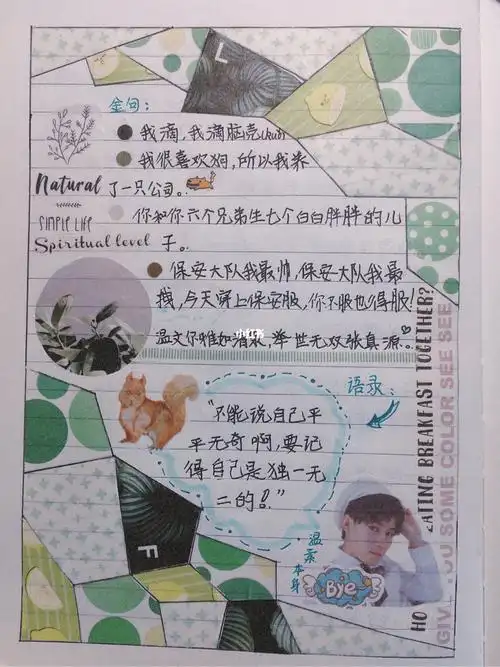 L
金句：
我滴，我滴脑壳(ku)
我很喜欢狗，所以我养
了一只公司。
Natural
SIMPLE LIFE
Spiritual level
你和你六个兄弟生七个白白胖胖的儿
子。
保安大队我最帅，保安大队我最
拽，今天穿上保安服，你不服也得服！
小红书
温文尔雅如清歌，举世无双张真源。
语录：
"不能说自己平
平无奇啊，要记
得自己是独一无
二的！"
温柔
本身
Bye
F
EATING BREAKFAST TOGETHER?
SOME COLOR SEE SEE
HO
GIVE YOU